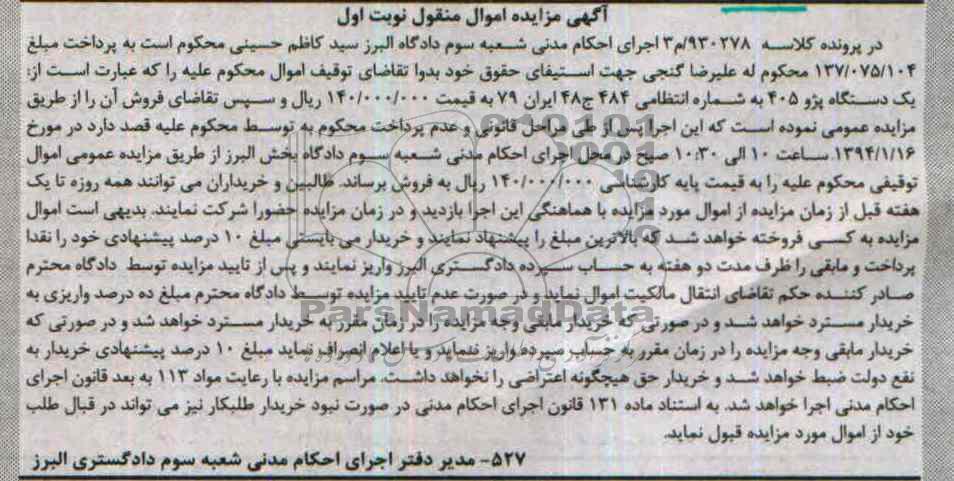 آگهی مزایده اموال منقول نوبت اول
در پرونده کلاسه ۹۳۰۲۷۸/م۳ اجرای احکام مدنی شعبه سوم دادگاه البرز سید کاظم حسینی محکوم است به پرداخت مبلغ
۱۳۷/۰۷۵/۱۰۴ محکوم له علیرضا گنجی جهت استیفای حقوق خود بدوا تقاضای توقیف اموال محکوم علیه را که عبارت است از:
یک دستگاه پژو ۴۰۵ به شماره انتظامی ۴۸۴ ج۴۸ ایران ۷۹ به قیمت ۱۴۰/۰۰۰/۰۰۰ ریال و سپس تقاضای فروش آن را از طریق
مزایده عمومی نموده است که این اجرا پس از طی مراحل قانونی و عدم پرداخت محکوم به توسط محکوم علیه قصد دارد در مورخ
۱۳۹۴/۱/۱۶ ساعت ۱۰ الی ۱۰:۳۰ صبح در محل اجرای احکام مدنی شعبه سوم دادگاه بخش البرز از طریق مزایده عمومی اموال
توقیفی محکوم علیه را به قیمت پایه کارشناسی ۱۴۰/۰۰۰/۰۰۰ ریال به فروش برساند. طالبین و خریداران می توانند همه روزه تا یک
هفته قبل از زمان مزایده از اموال مورد مزایده با هماهنگی این اجرا بازدید و در زمان مزایده حضورا شرکت نمایند. بدیهی است اموال
مزایده به کسی فروخته خواهد شد که بالاترین مبلغ را پیشنهاد نمایند و خریدار می بایستی مبلغ ۱۰ درصد پیشنهادی خود را نقدا
پرداخت و مابقی را ظرف مدت دو هفته به حساب سپرده دادگستری البرز واریز نمایند و پس از تایید مزایده توسط دادگاه محترم
صادر کننده حکم تقاضای انتقال مالکیت اموال نماید و در صورت عدم تایید مزایده توسط دادگاه محترم مبلغ ده درصد واریزی به
خریدار مسترد خواهد شد و در صورتی که خریدار مابقی وجه مزایده را در زمان مقرر به خریدار مسترد خواهد شد و در صورتی که
خریدار مابقی وجه مزایده را در زمان مقرر به حساب سپرده واریز ننماید و یا اعلام انصراف نماید مبلغ ۱۰ درصد پیشنهادی خریدار به
نفع دولت ضبط خواهد شد و خریدار حق هیچگونه اعتراضی را نخواهد داشت. مراسم مزایده با رعایت مواد ۱۱۳ به بعد قانون اجرای
احکام مدنی اجرا خواهد شد. به استناد ماده ۱۳۱ قانون اجرای احکام مدنی در صورت نبود خریدار طلبکار نیز می تواند در قبال طلب
خود از اموال مورد مزایده قبول نماید.
۵۲۷- مدیر دفتر اجرای احکام مدنی شعبه سوم دادگستری البرز
ParsNamadData